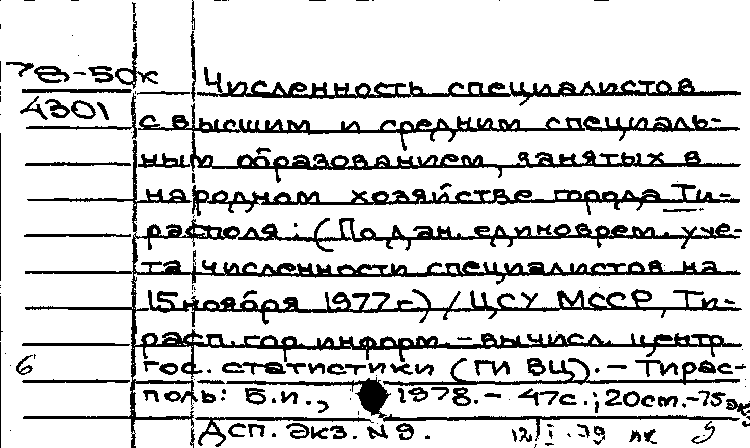 78-50к Численность специалистов
4301
с высшим и средним специаль-
ным образованием, занятых в
народном хозяйстве города Ти-
располя: (По дан. единоврем. уче-
та численности специалистов на
15 ноября 1977 г.) / ЦСУ МССР, Ти-
расп. гор. информ.-вычисл. центр
6 гос. статистики (ГИВЦ). – Тирас-
поль: Б.и., 1978. – 47с.; 20см. – 75 экз
Дсп. Экз. N 9.